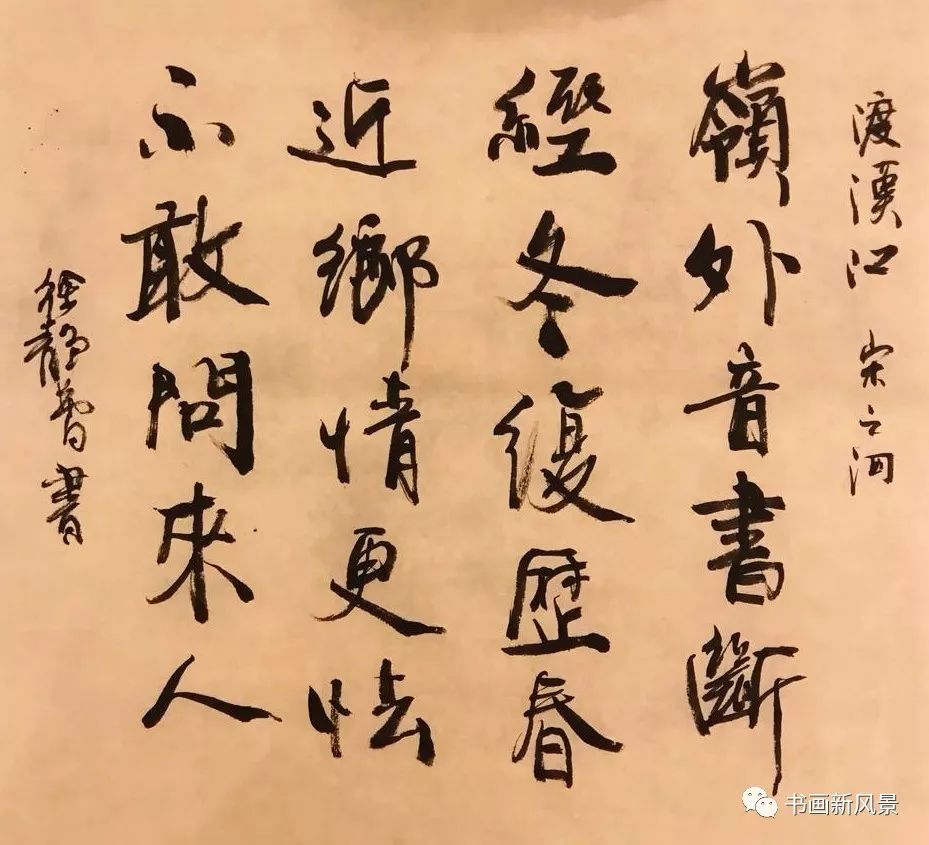 渡漢江 宋之问
嶺外音書斷
經冬復歷春
近鄉情更怯
不敢問來人
徐静 書
书画新风景